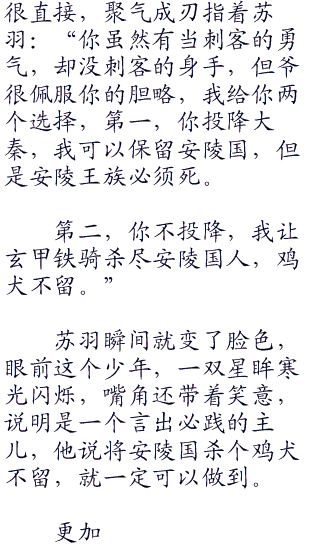 很直接，聚气成刃指着苏
羽：“你虽然有当刺客的勇
气，却没刺客的身手，但爷
很佩服你的胆略，我给你两
个选择，第一，你投降大
秦，我可以保留安陵国，但
是安陵王族必须死。
第二，你不投降，我让
玄甲铁骑杀尽安陵国人，鸡
犬不留。”
苏羽瞬间就变了脸色，
眼前这个少年，一双星眸寒
光闪烁，嘴角还带着笑意，
说明是一个言出必践的主
儿，他说将安陵国杀个鸡犬
不留，就一定可以做到。
更加